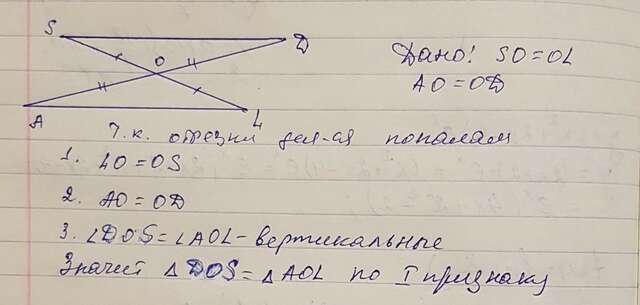 S
D
O
A
L
Дано: SO=OL
AO=OD
Т.к. отрезки дел-ся пополам
1. LO=OS
2. AO=OD
3. ∠DOS=∠AOL-вертикальные
Значит △DOS=△AOL по I признаку